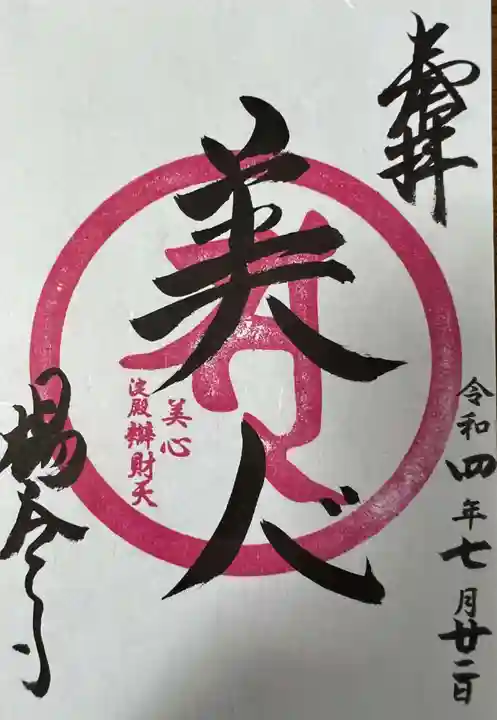 奉拝
美人
美心
淀殿 辯財天
令和四年七月廿二日